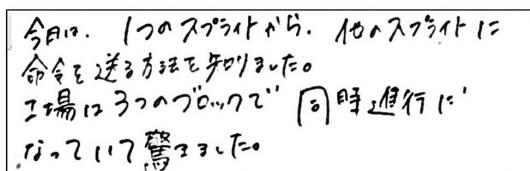 今日は、1つのスプライトから、他のスプライトに
命令を送る方法を知りました。
工場は3つのブロックで同時進行に
なっていて驚きました。